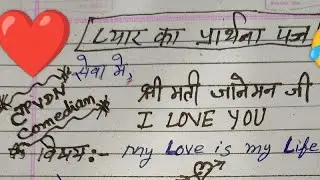 प्यार का प्रार्थना पत्र
सेवा में,
श्री मती जानेमन जी
CPVDN
Comediam
I LOVE YOU
विषय:- my Love is my Life